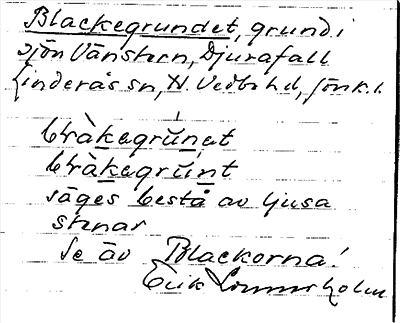 Blackegrundet, grund i
sjön Vänstern, Djurafall
Linderås sn, N. Vedbo hd, Jönk. l.
bràkegrŭnet
bràkegrŭnt
säges bestå av ljusa
stenar
Se äv Blackorna!
Erik Lönnerholm